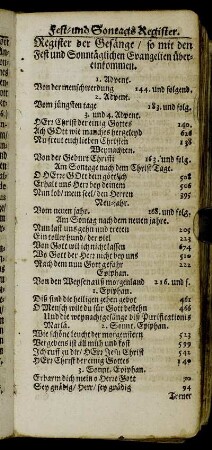 Fest- und Sontags Register.
Register der Gesänge / so mit den
Fest und Sonntäglichen Evangelien über-
einkommen.
1. Advent.
Von der menschwerdung 144. und folgend.
2. Advent.
Vom jüngsten tage 183. und folg.
3. und 4. Advent.
HErr Christ der einig Gottes 140.
Ach GOtt wie manches hertzeleyd 628
Nu freut euch lieben Christen 138
Weynachten.
Von der Geburt Christi 163. und folg.
Am Sontage nach dem Christ Tage.
O HErre GOtt dein göttlich 508
Erhalt uns HErr bey deinem 506
Nun lob/ mein seel/ den Herren
Neu-jahr.
Vom neuen jahre. 208. und folg.
Am Sontag nach dem neuen jahre.
Nun last uns gehn und treten 205
Ein teller hund/ der viel 223
Von Gott wil ich nicht lassen 674
Wo Gott der Herr nicht bey uns 570
Nach dem nun Gott gefahr 222
Epiphan.
Von den Weysen auß morgenland 216. und f.
1. Epiphan.
Diß sind die heiligen zehen gebot 461
O Mensch wilt du für Gott bestehn 466
Und die weynachtgesänge biß Purificationis
Mariä. 2. Sonnt. Epiphan.
Wie schöne leucht der morgenstern 523
Vergebens ist all müh und kost 599
Ich ruff zu dir/ HErr Jesu Christ 542
HErr Christ der einig Gottes 140
3. Sonnt. Epiphan.
Erbarm dich mein o Herre Gott 90
Sey gnädig/ Herr/ sey gnädig 94